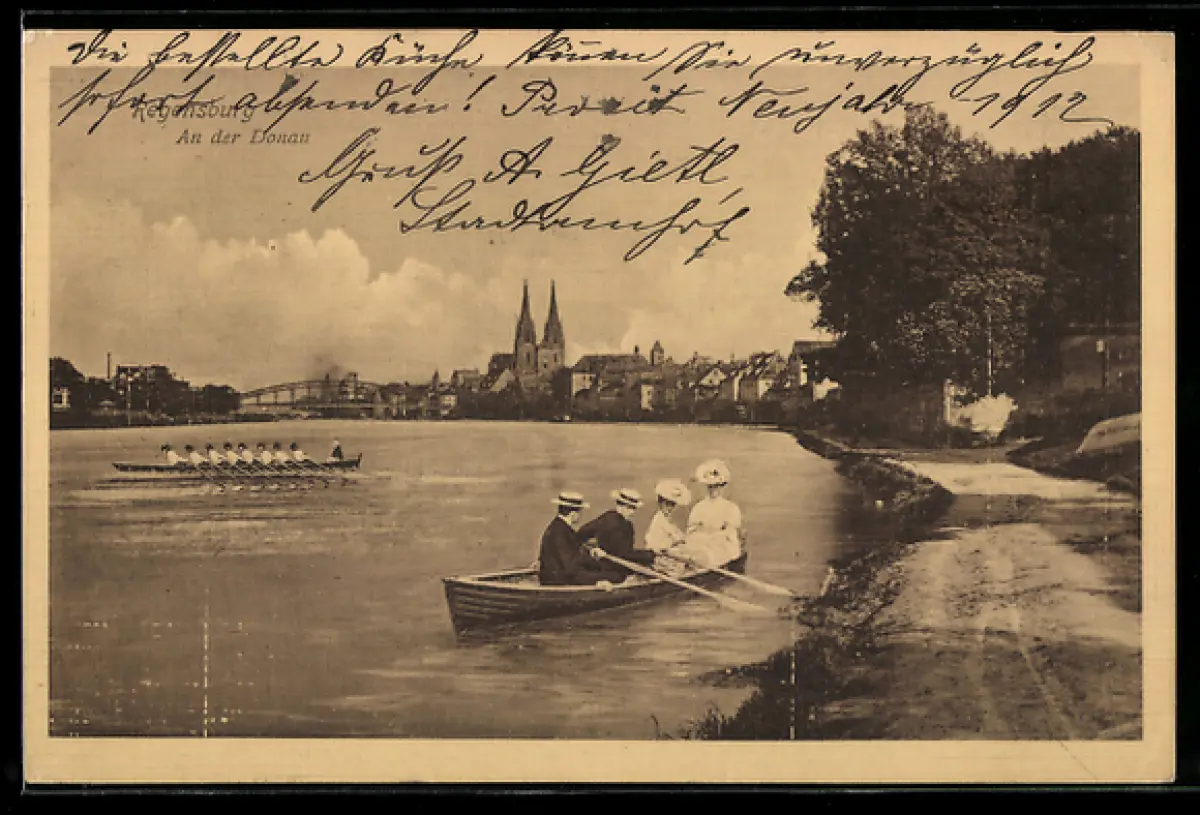 Die bestellte Küche können Sie unverzüglich
sofort absenden! Prosit Neujahr 1912
Regensburg
An der Donau
Gruß A. Gietl
Stadtamhof